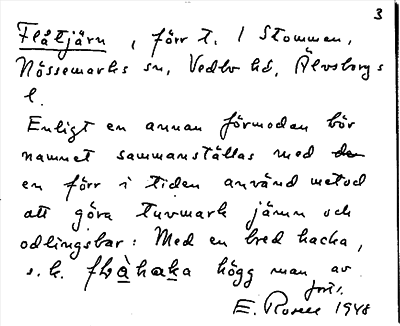 3
Flåtjärn, förr t. 1 Stommen,
Nössemarks sn, Vedbo hd, Älvsborgs
l.
Enligt en annan förmodan bör
namnet sammanställas med den
en förr i tiden använd metod
att göra tuvmark jämn och
odlingsbar: Med en bred hacka,
s. k. flåhaka högg man av
forts.
E. 1948